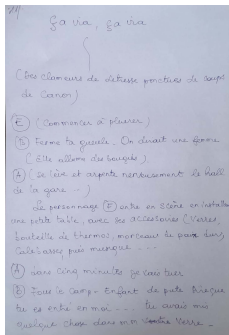 ça va, ça va
(Des clameurs de détresse ponctuées de coups
de Canon)
(E) (Commencer à pleurer)
(D) Ferme ta gueule. On dirait une femme
(Elle allume des bougies)
(A) (Se lève et arpente nerveusement le hall
de la gare -)
Le personnage (E) entre en scène en installant
une petite table, avec ses accessoires (Verres,
bouteille de thermos, morceaux de pain durs,
calebasses puis musique - - -
(A) Dans cinq minutes je vais tuer
(B) Fous le camp. Enfant de pute
tu es entré en moi - - . tu avais mis
quelque chose dans mon verre.